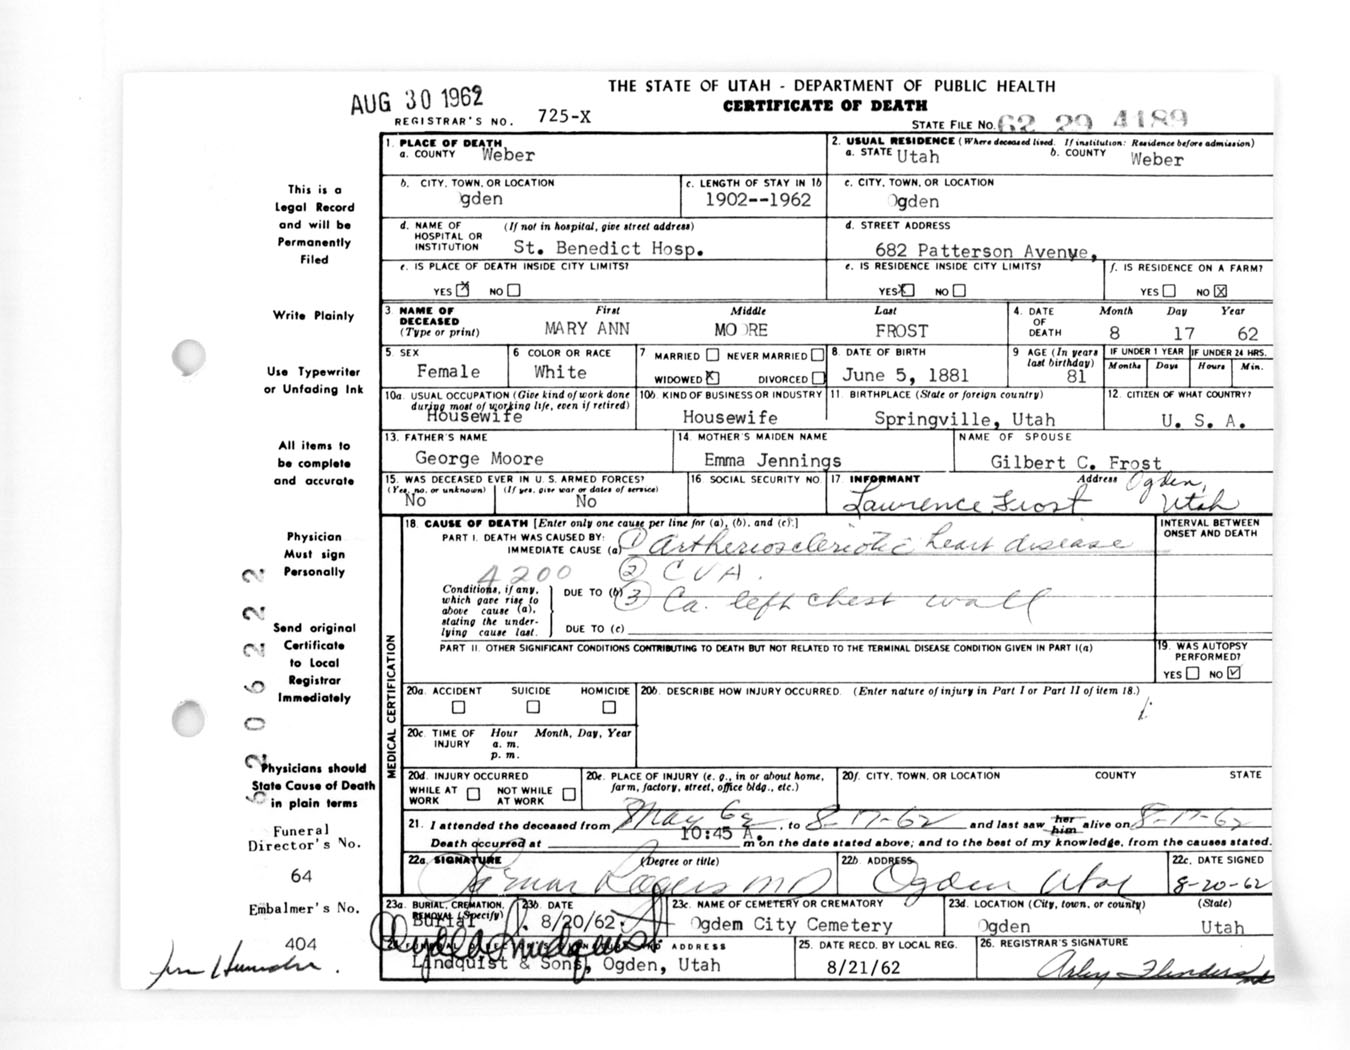 THE STATE OF UTAH - DEPARTMENT OF PUBLIC HEALTH
CERTIFICATE OF DEATH
AUG 30 1962
REGISTRAR'S NO. 725-X
STATE FILE NO. 62 29 4189
1. PLACE OF DEATH
a. COUNTY Weber
2. USUAL RESIDENCE (Where deceased lived. If institution: Residence before admission)
a. STATE Utah b. COUNTY Weber
b. CITY, TOWN, OR LOCATION
Ogden
c. LENGTH OF STAY IN 1b
1902--1962
c. CITY, TOWN, OR LOCATION
Ogden
d. NAME OF HOSPITAL OR INSTITUTION (If not in hospital, give street address)
St. Benedict Hosp.
d. STREET ADDRESS
682 Patterson Avenye,
e. IS PLACE OF DEATH INSIDE CITY LIMITS?
YES X NO
e. IS RESIDENCE INSIDE CITY LIMITS?
YES X NO
f. IS RESIDENCE ON A FARM?
YES NO X
3. NAME OF DECEASED (Type or print)
First Middle Last
MARY ANN MOORE FROST
4. DATE OF DEATH
Month Day Year
8 17 62
5. SEX
Female
6 COLOR OR RACE
White
7 MARRIED NEVER MARRIED
WIDOWED X DIVORCED
8. DATE OF BIRTH
June 5, 1881
9 AGE (In years last birthday)
81
IF UNDER 1 YEAR
Months Days
IF UNDER 24 HRS.
Hours Min.
10a. USUAL OCCUPATION (Give kind of work done during most of working life, even if retired)
Housewife
10b. KIND OF BUSINESS OR INDUSTRY
Housewife
11. BIRTHPLACE (State or foreign country)
Springville, Utah
12. CITIZEN OF WHAT COUNTRY?
U. S. A.
13. FATHER'S NAME
George Moore
14. MOTHER'S MAIDEN NAME
Emma Jennings
NAME OF SPOUSE
Gilbert C. Frost
15. WAS DECEASED EVER IN U. S. ARMED FORCES?
(Yes, no, or unknown) (If yes, give war or dates of service)
No No
16 SOCIAL SECURITY NO.
17 INFORMANT Address
Lawrence Frost Ogden, Utah
18. CAUSE OF DEATH [Enter only one cause per line for (a), (b), and (c).]
INTERVAL BETWEEN ONSET AND DEATH
PART I. DEATH WAS CAUSED BY:
IMMEDIATE CAUSE (a) (1) Artherioscleriotic heart disease
4200 (2) CVA.
Conditions, if any, which gave rise to above cause (a), stating the underlying cause last.
DUE TO (b) (3) Ca. left chest wall
DUE TO (c)
PART II. OTHER SIGNIFICANT CONDITIONS CONTRIBUTING TO DEATH BUT NOT RELATED TO THE TERMINAL DISEASE CONDITION GIVEN IN PART I(a)
19. WAS AUTOPSY PERFORMED?
YES NO ✓
20a. ACCIDENT SUICIDE HOMICIDE
20b. DESCRIBE HOW INJURY OCCURRED. (Enter nature of injury in Part I or Part II of item 18.)
20c. TIME OF INJURY Hour Month, Day, Year
a. m.
p. m.
20d. INJURY OCCURRED
WHILE AT WORK NOT WHILE AT WORK
20e. PLACE OF INJURY (e. g., in or about home, farm, factory, street, office bldg., etc.)
20f. CITY, TOWN, OR LOCATION COUNTY STATE
21. I attended the deceased from May 62, to 8-17-62 and last saw her him alive on 8-17-62
Death occurred at 10:45 A. m on the date stated above; and to the best of my knowledge, from the causes stated.
22a. SIGNATURE (Degree or title)
Rogers MD
22b. ADDRESS
Ogden Utah
22c. DATE SIGNED
8-20-62
23a. BURIAL, CREMATION, REMOVAL (Specify)
Burial
23b. DATE
8/20/62
23c. NAME OF CEMETERY OR CREMATORY
Ogdem City Cemetery
23d. LOCATION (City, town, or county) (State)
Ogden Utah
ADDRESS
Lindquist & Sons, Ogden, Utah
25. DATE RECD. BY LOCAL REG.
8/21/62
26. REGISTRAR'S SIGNATURE
MEDICAL CERTIFICATION
This is a
Legal Record
and will be
Permanently
Filed
Write Plainly
Use Typewriter
or Unfading Ink
All items to
be complete
and accurate
Physician
Must sign
Personally
Send original
Certificate
to Local
Registrar
Immediately
Physicians should
State Cause of Death
in plain terms
Funeral
Director's No.
64
Embalmer's No.
404